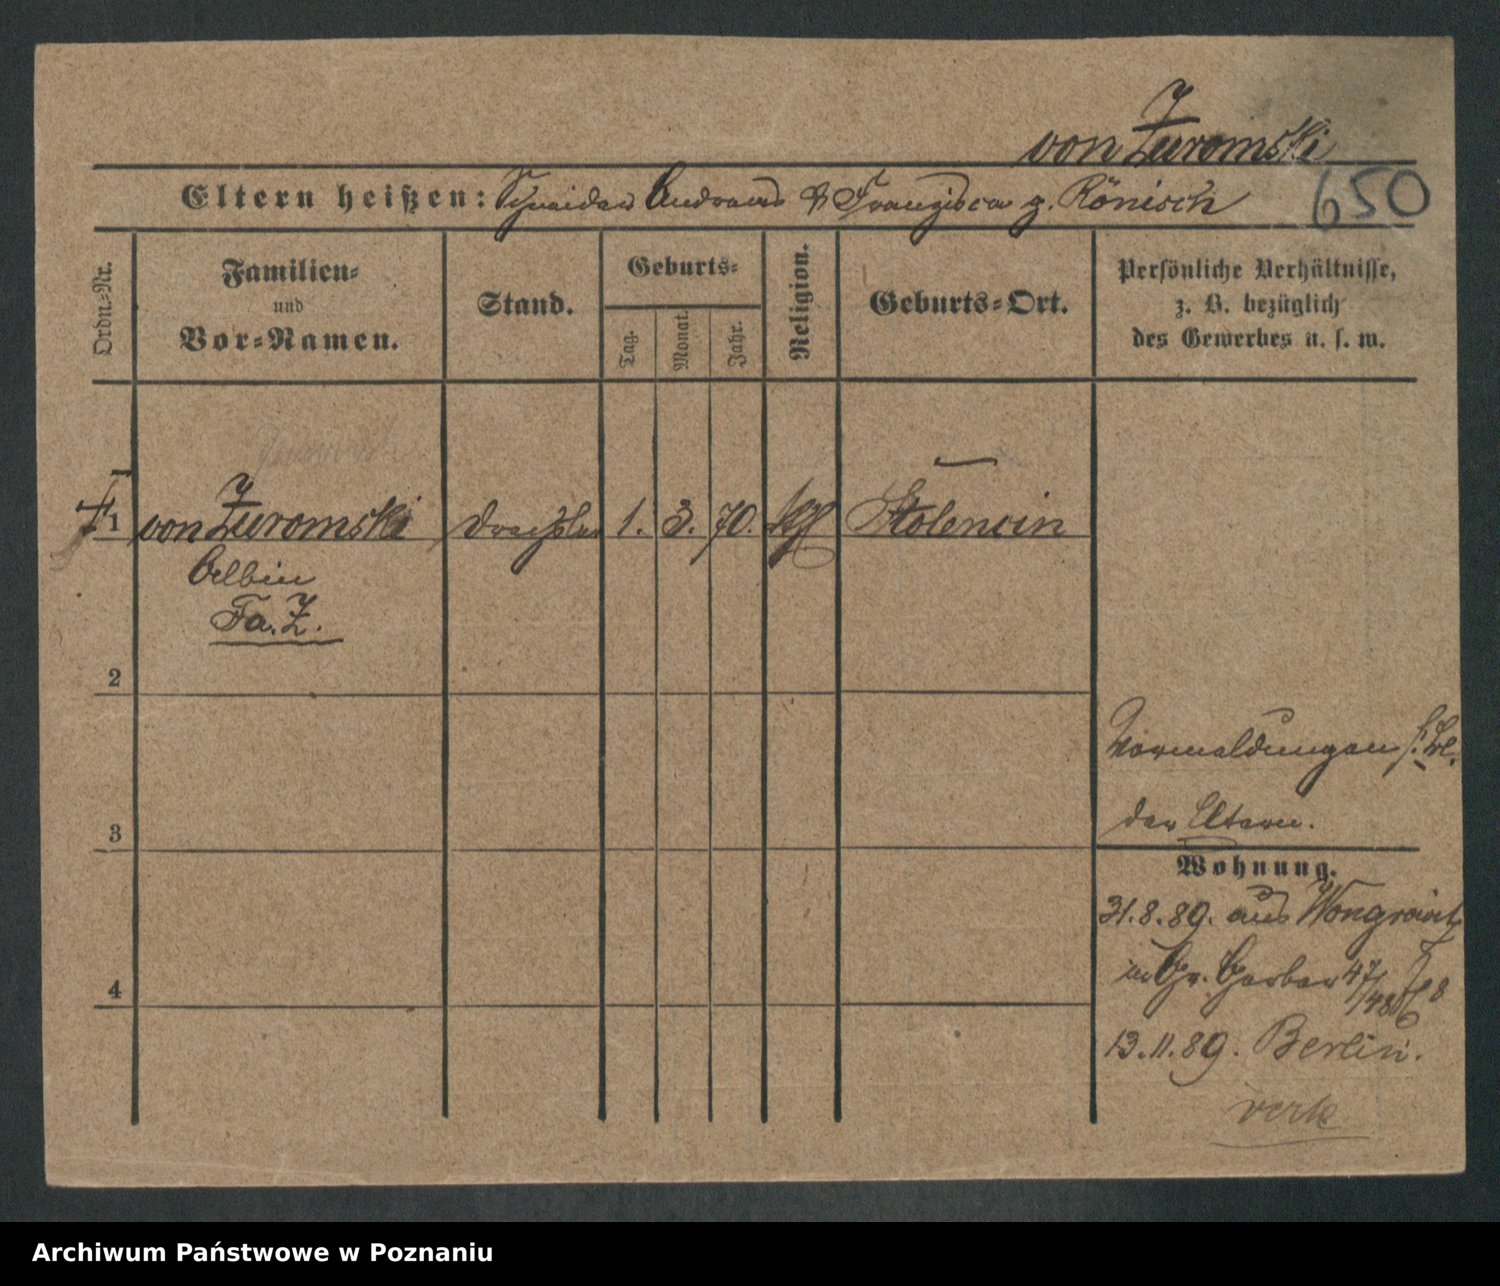 von Zuromski
Eltern heißen: Schneider Andreas & Franzisca g. Rönisch
650
Ordn.-Nr.
Familien-
und
Vor-Namen.
Stand.
Geburts-
Tag.
Monat.
Jahr.
Religion.
Geburts-Ort.
Persönliche Verhältnisse,
z. B. bezüglich
des Gewerbes u. s. w.
1 von Zuromski Drechsler 1. 3. 70. kth Stolencin
Albin
Fa. Z.
2
Vormeldungen s. Bl.
3
der Eltern.
Wohnung.
31.8.89. aus Wongrowitz
in Gr. Gerber 47/48
4
13.11.89. Berlin.
verte
Archiwum Państwowe w Poznaniu